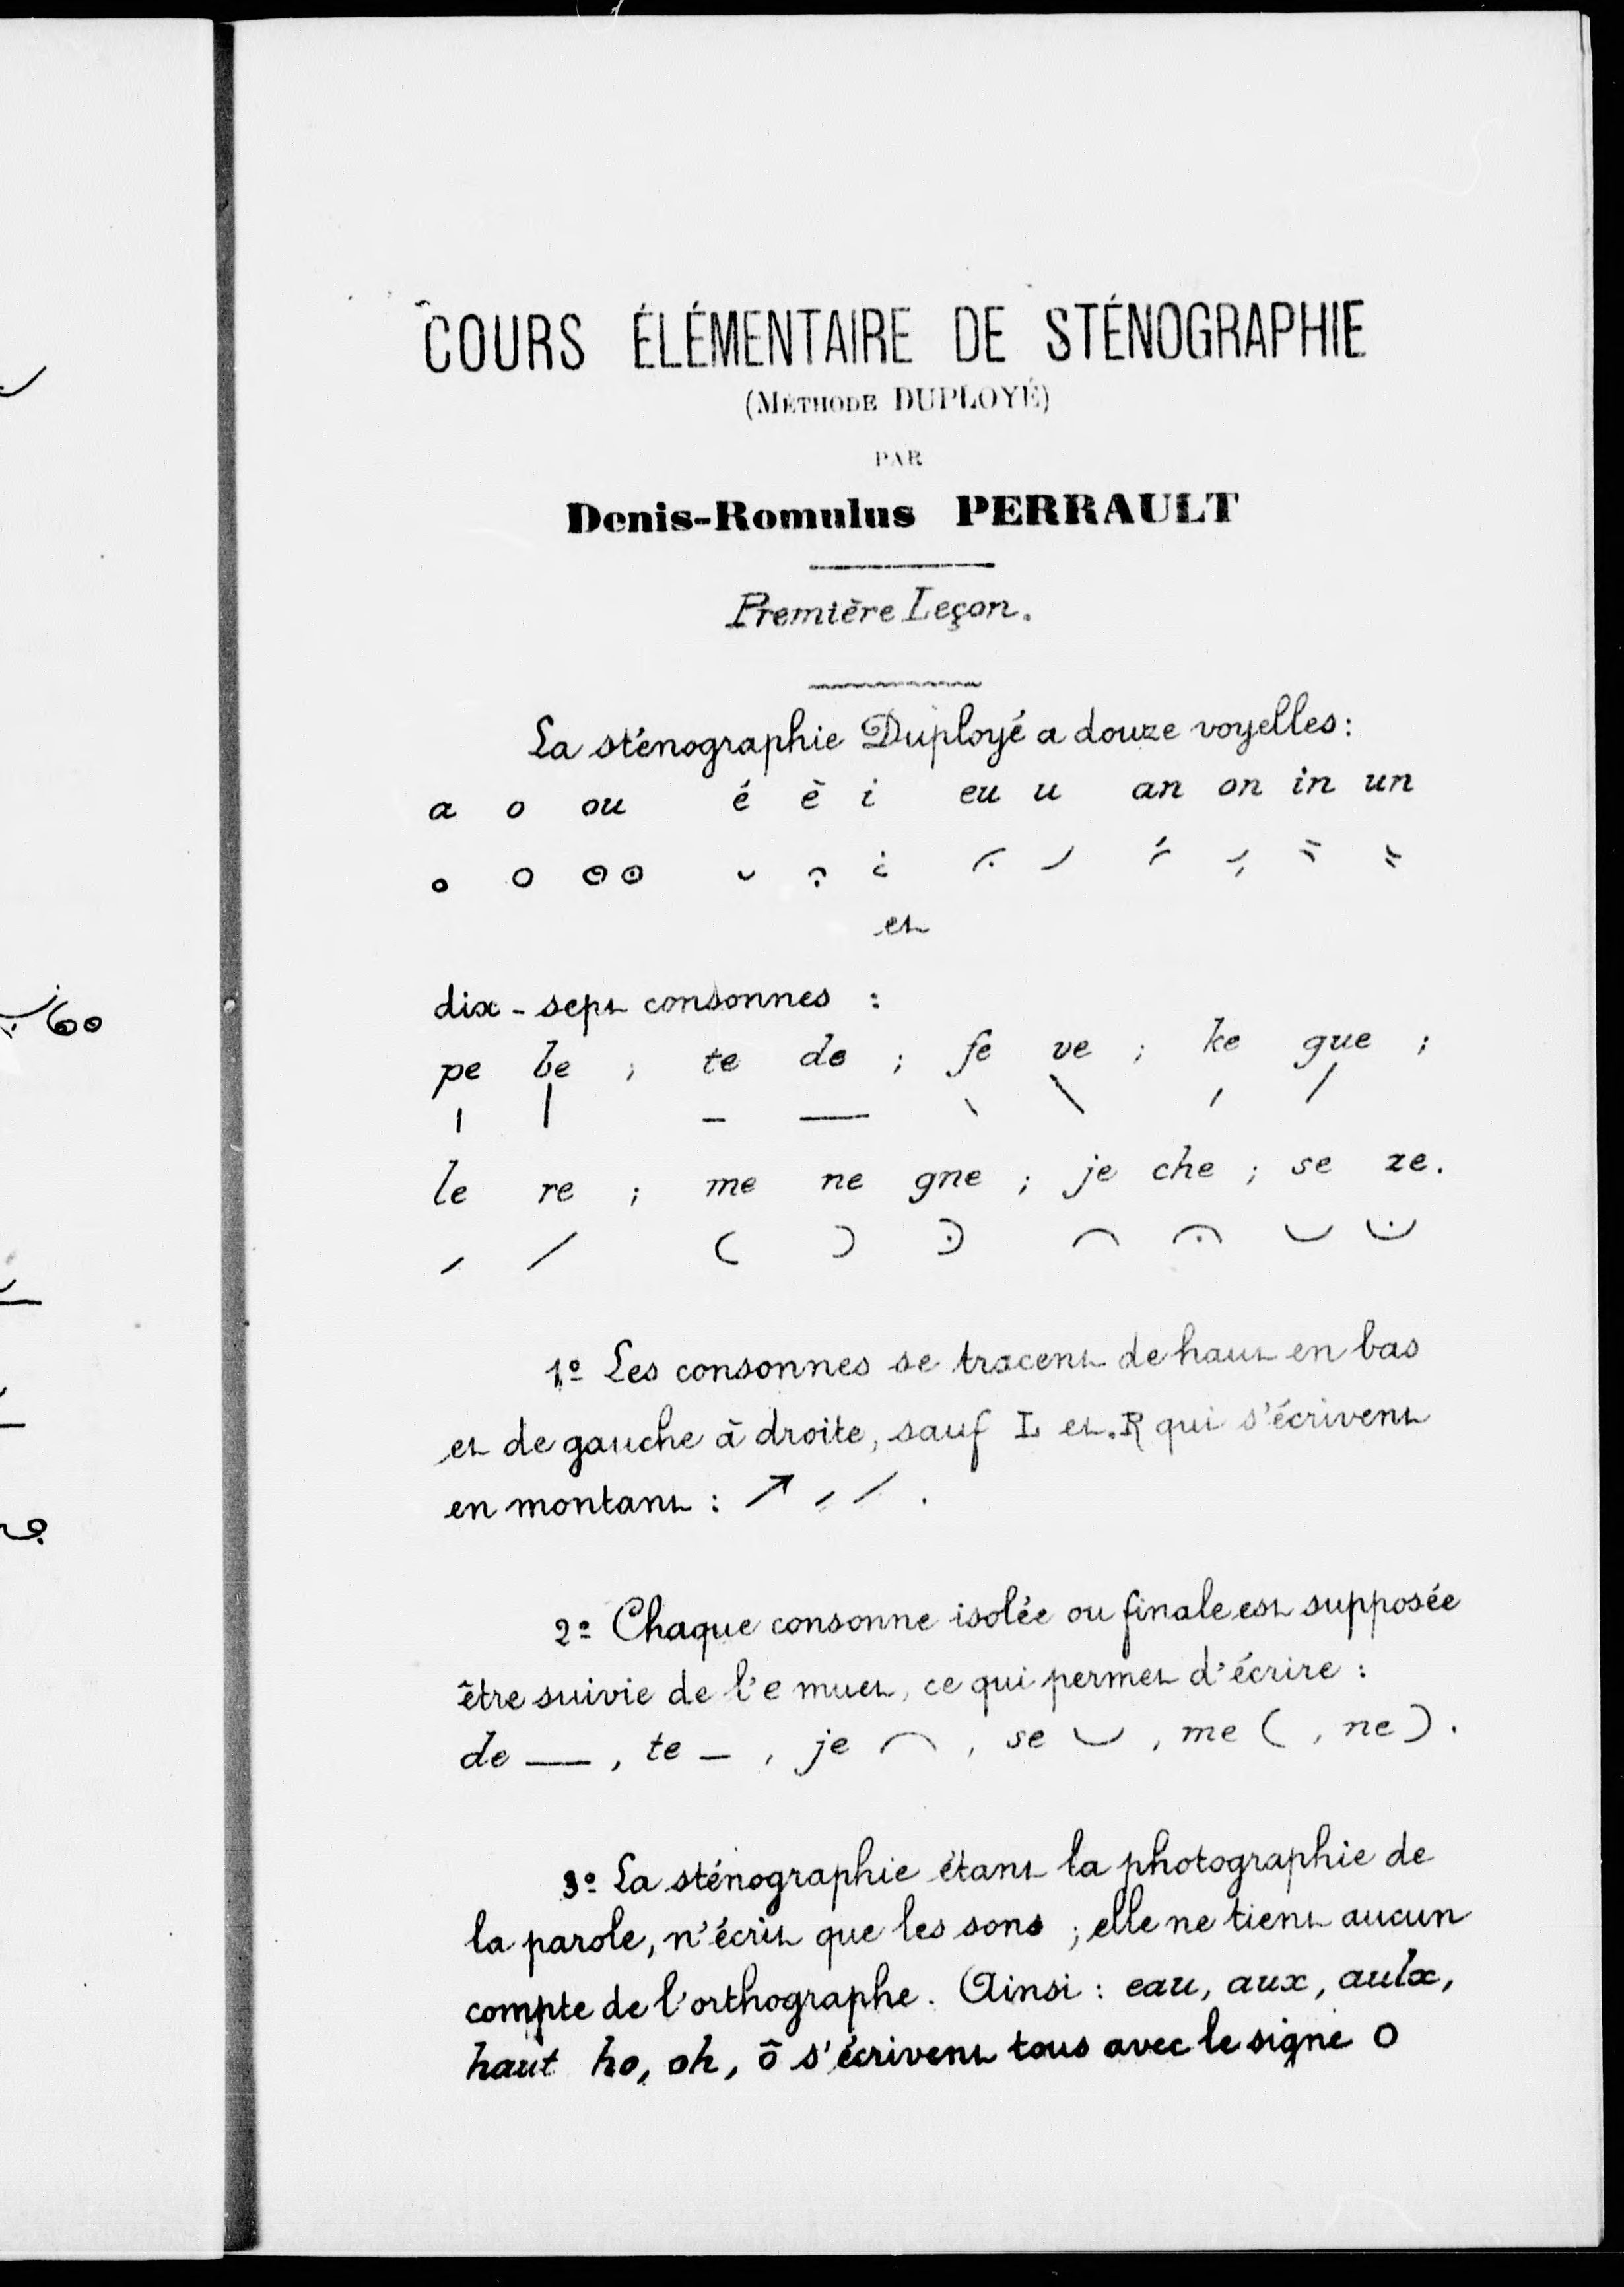 COURS ÉLÉMENTAIRE DE STÉNOGRAPHIE
(MÉTHODE DUPLOYÉ)
PAR
Denis-Romulus PERRAULT
Première Leçon.
La sténographie Duployé a douze voyelles :
a o ou é è i eu u an on in un
et
dix-sept consonnes :
pe be ; te de ; fe ve ; ke gue ;
le re ; me ne gne ; je che ; se ze.
1º Les consonnes se tracent de haut en bas
et de gauche à droite, sauf L et R qui s'écrivent
en montant : ↗ , / .
2º Chaque consonne isolée ou finale est supposée
être suivie de l'e muet, ce qui permet d'écrire :
de —, te –, je ⌒, se ⌣, me (, ne ).
3º La sténographie étant la photographie de
la parole, n'écrit que les sons ; elle ne tient aucun
compte de l'orthographe. Ainsi : eau, aux, aulx,
haut ho, oh, ô s'écrivent tous avec le signe O